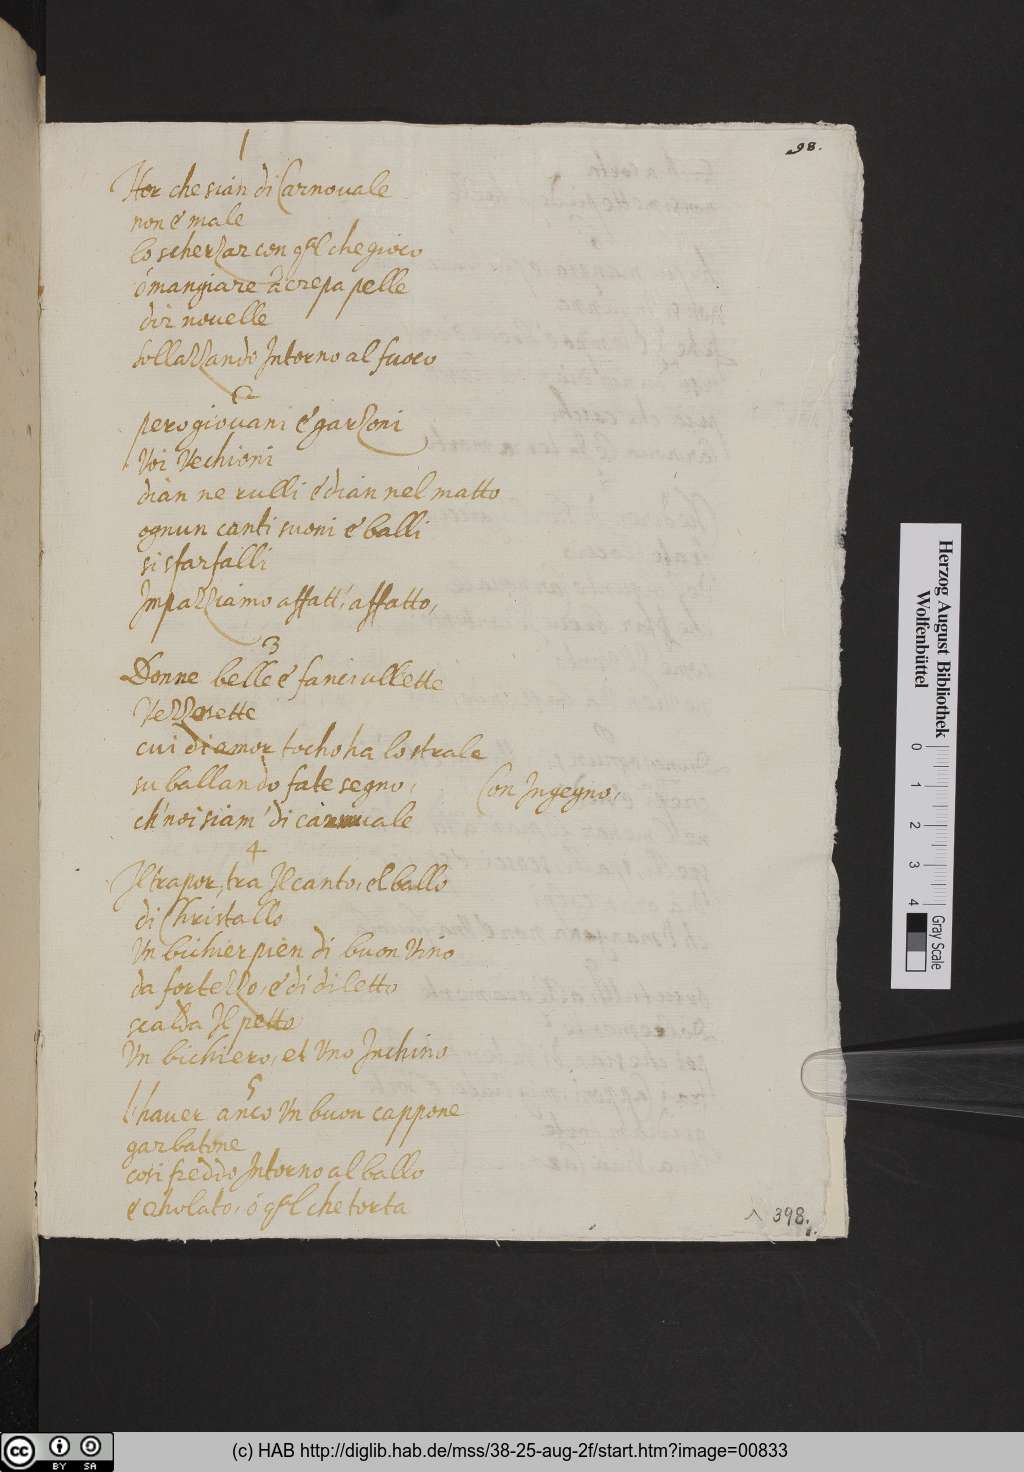 98.
1
Hor che siàn di Carnouale
non é male
lo scherzar con qual che gioco
ó mangiare à crepa pelle
dir nouelle
sollazzando Intorno al fuoco
2
pero giouani é garzoni
Voi Vechioni
diàn ne rulli é diàn nel matto
ognun canti suoni é balli
si sfarfalli
Impazziamo affatt', affatto,
3
Donne belle é fanciullette
Vezzosette
cui di amor tocho ha lo strale
su ballando fate segno, Con Ingegno,
ch' noi siam' di carnuale
4
Il trapor, tra Il canto, el ballo
di Christallo
Vn bichier pièn di buon Vino
da fortezzo, é di diletto
scalda Il petto
Vn bichiero, et Vno Inchino
5
l'hauer anco Vn buon cappone
garbatone
cosi freddo Intorno al ballo
é cholato, ó qual che torta
398.
Herzog August Bibliothek
Wolfenbüttel
0 1 2 3 4
Gray Scale
(c) HAB http://diglib.hab.de/mss/38-25-aug-2f/start.htm?image=00833
cc BY SA